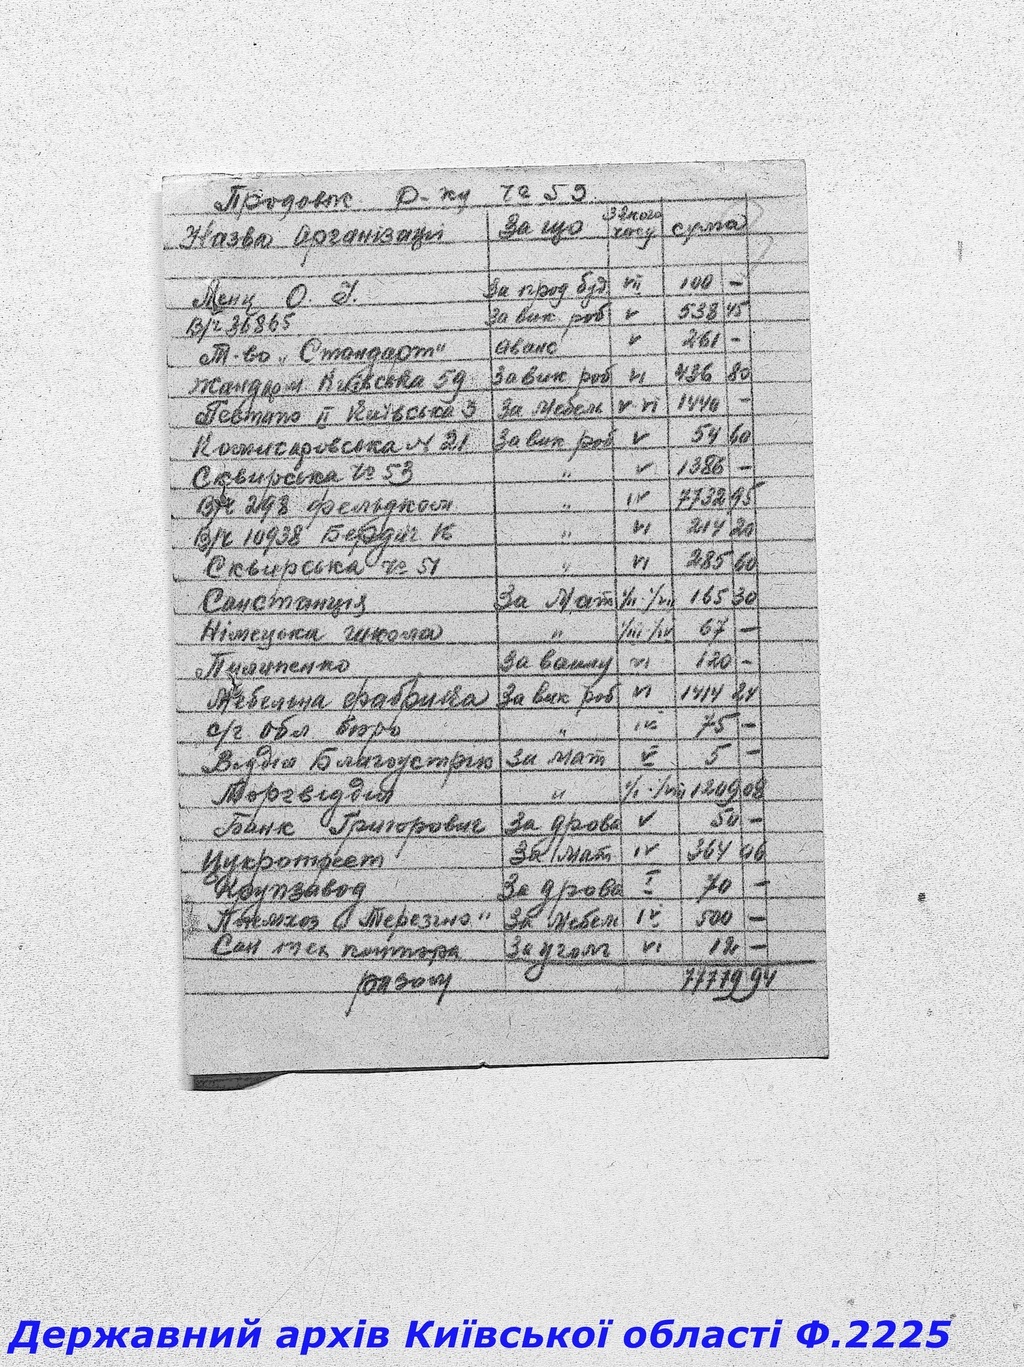 Продовж. О-ку № 59.
Назва Організації За що З якого часу сума
Менц О. Я. За прод буд. VII 100 –
В/ч 36865 За вик роб V 538 45
Т-во „Стандарт" Аванс V 261 –
Жандарм Київська 59 За вик роб VI 436 80
II Київська 3 За мебель V-VI 1440 –
Комисаровська № 21 За вик роб V 54 60
Сквирська № 53 „ V 1386 –
В/ч 298 фельдком „ IV 7732 95
В/ч 10938 Бердич „ VI 214 20
Сквирська № 51 „ VI 285 60
Санстанція За Мат 165 30
Німецька школа „ 67 –
Пилипенко За ванну VI 120 –
Мебельна фабрика За вик роб VI 1414 24
с/г обл бюро „ IV 75 –
Відділ Благоустрію За мат V 5 –
Торгвідділ „ 1209 08
Банк Григорович За дрова V 50 –
Цукротрест За Мат IV 364 96
Крупзавод За дрова I 70 –
„Терезино" За мебел IV 500 –
Сан тех контора За уголь VI 12 –
разом 77779 94
Державний архів Київської області Ф.2225